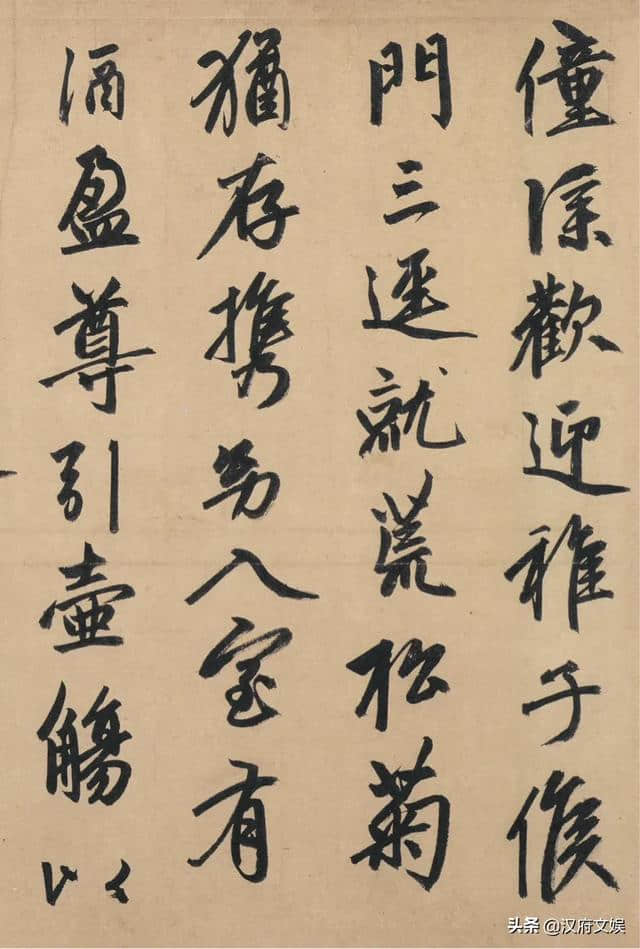 僮僕歡迎稚子候
門三逕就荒松菊
猶存携幼入室有
酒盈尊引壺觴以
头条 @汉府文娱